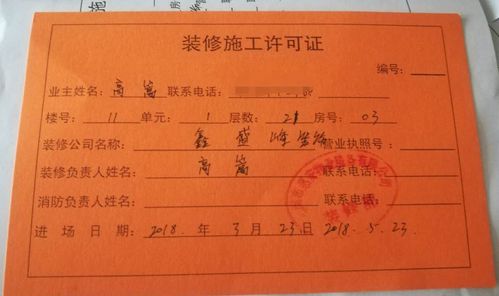 装修施工许可证
编号:
业主姓名: 高 联系电话:
楼号: 11 单元: 1 层数: 21 房号: 03
装修公司名称: 鑫盛 营业执照号:
装修负责人姓名: 高 联系电话:
消防负责人姓名: 联系电话:
进场日期: 2018. 年 3 月 23 日 2018.5.23.